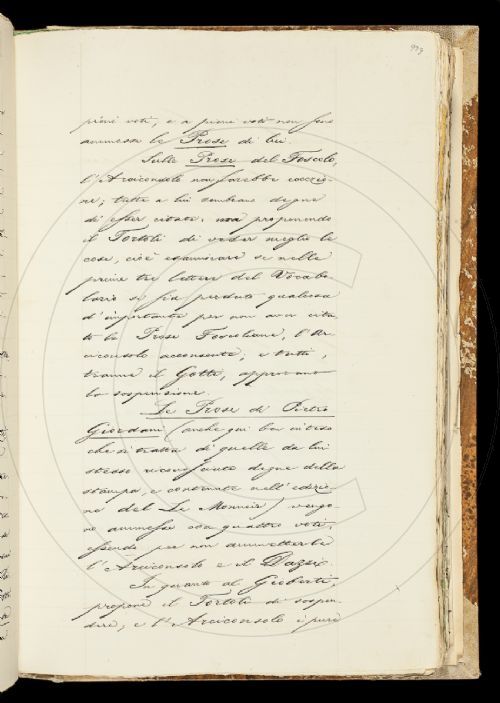 993
pieni voti, e a pieni voti non son
ammesse le Prose di lui.
Sulle Prose del Foscolo,
l'Arciconsolo non farebbe eccezio-
ne; tutte a lui sembrano degne
di esser citate, ma proponendo
il Tortoli di veder meglio la
cosa, cioè esaminare se nelle
prime tre lettere del Vocabo-
lario si sia perduto qualcosa
d'importante per non aver cita-
to le Prose Foscoliane, l'Ar-
ciconsolo acconsente, e tutti,
tranne il Gotti, approvano
la sospensione.
Le Prose di Pietro
Giordani (anche qui ben inteso
che si tratta di quelle da lui
stesso riconosciute degne della
stampa, e contenute nell'edizio-
ne del Le Monnier) vengo-
no ammesse con quattro voti,
essendo per non ammetterle
l'Arciconsolo e il Dazzi.
In quanto al Gioberti,
propone il Tortoli di sospen-
dere, e l'Arciconsolo è pure